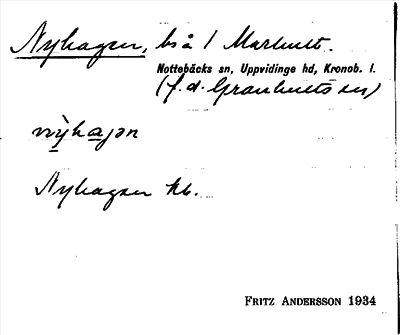 Nyhagen, bs å 1 Marhult.
Nottebäcks sn, Uppvidinge hd, Kronob. l.
(f.d. Granhults sn)
nỳhagən
Nyhagen kb.
FRITZ ANDERSSON 1934